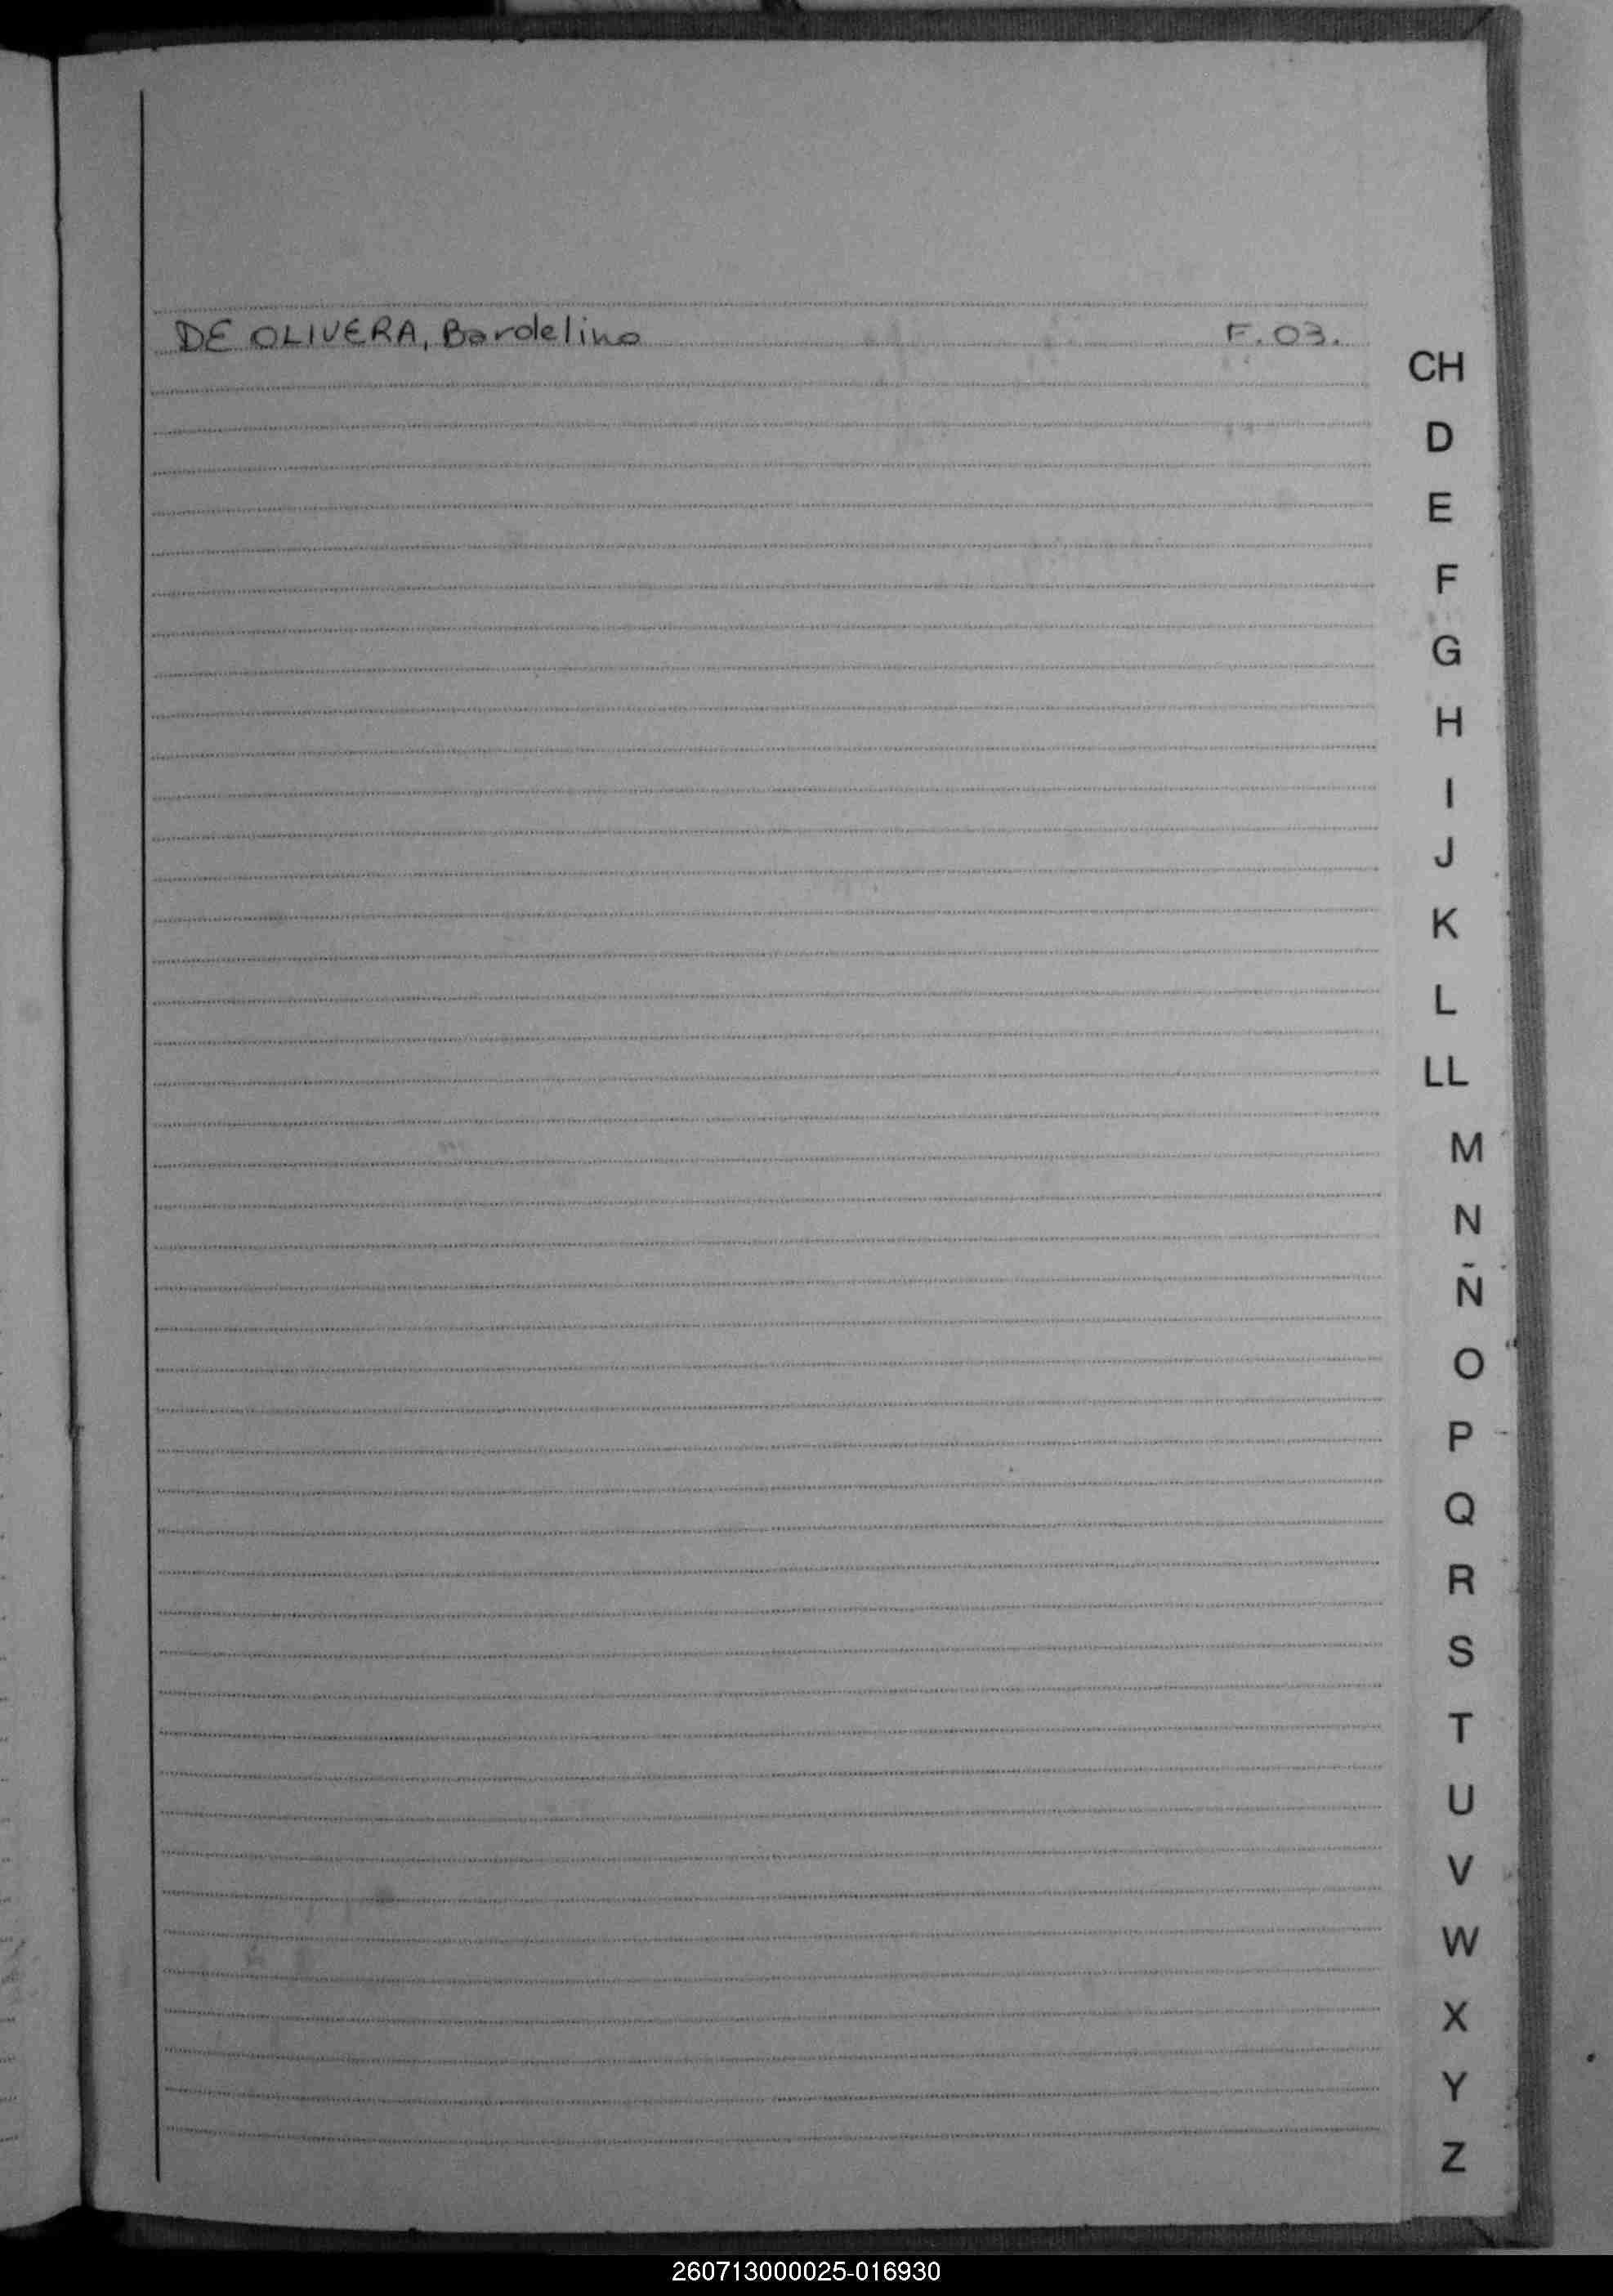 DE OLIVERA, Bardelino F. 03.
CH
D
E
F
G
H
I
J
K
L
LL
M
N
Ñ
O
P
Q
R
S
T
U
V
W
X
Y
Z
260713000025-016930